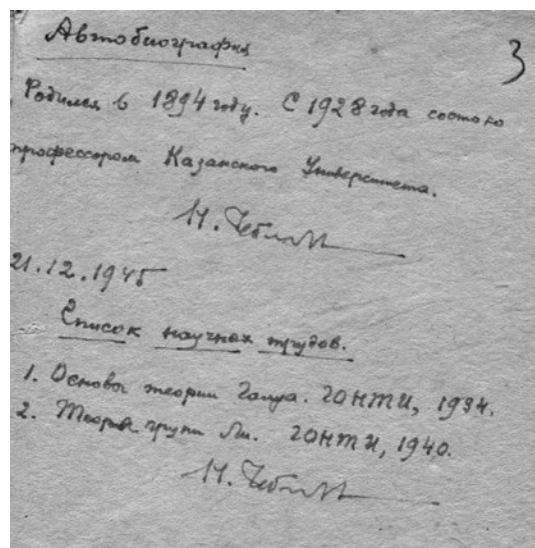 3
Автобиография
Родился в 1894 году. С 1928 года состою
профессором Казанского Университета.
Н. Чебот
21.12.1945
Список научных трудов.
1. Основы теории Галуа. ГОНТИ, 1934.
2. Теория групп Ли. ГОНТИ, 1940.
Н. Чебот